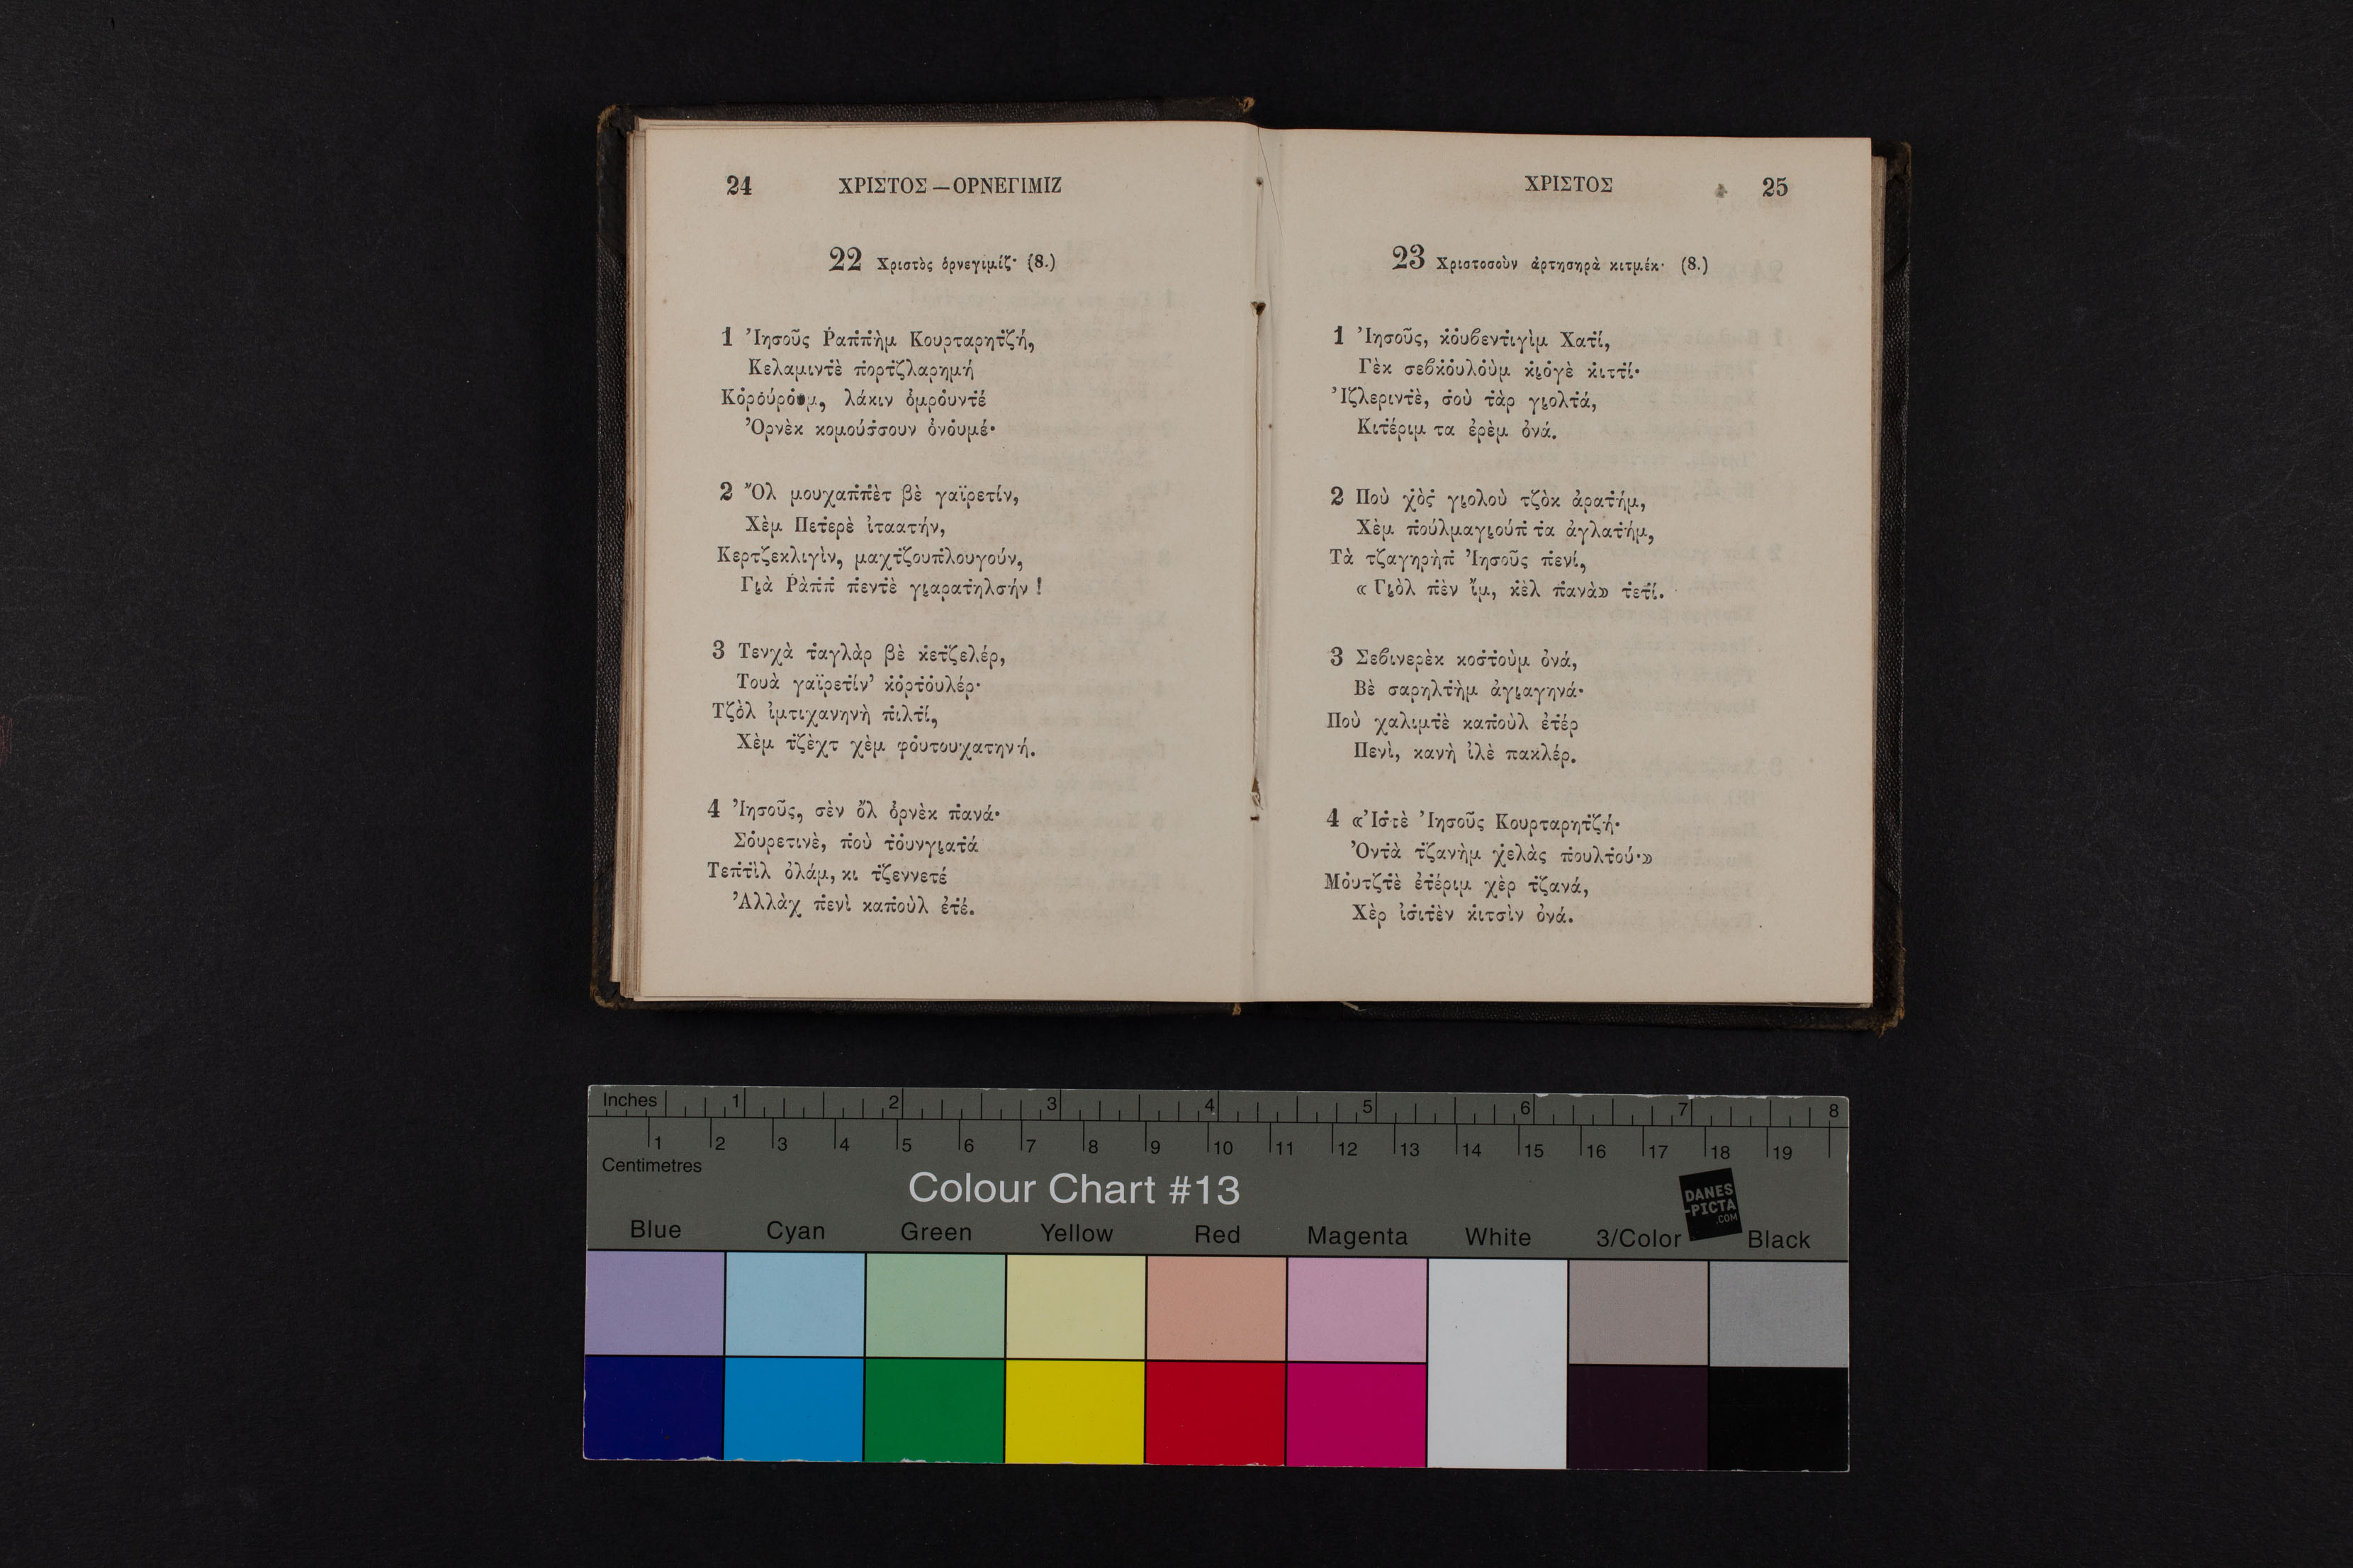 24 ΧΡΙΣΤΟΣ — ΟΡΝΕΓΙΜΙΖ
22 Χριστὸς ὀρνεγιμίζ· (8.)
1 Ἰησοῦς Ῥαπ̇π̇ὴμ Κουρταρητ̇ζή,
Κελαμιντ̇ὲ π̇ορτ̇ζλαρημή
Κὀρὀύρὀυμ, λάκιν ὀμρὀυντ̇έ
Ὀρνὲκ κομούσ̇σουν ὀνὀυμέ·
2 Ὂλ μουχαπ̇π̇ὲτ βὲ γαϊρετίν,
Χὲμ Πετ̇ερὲ ἰταατήν,
Κερτζεκλιγὶν, μαχτ̇ζουπ̇λουγούν,
Γι̣ὰ Ῥὰπ̇π̇ π̇εντ̇ὲ γι̣αρατ̇ηλσήν !
3 Τενχὰ τ̇αγλὰρ βὲ κ̇ετ̇ζελέρ,
Τουὰ γαϊρετίν' κ̇ὀρτ̇ὀυλέρ·
Τζὀλ ἰμτιχανηνὴ π̇ιλτ̇ί,
Χὲμ τ̇ζὲχτ χὲμ φὀυτουχατηνή.
4 Ἰησοῦς, σὲν ὂλ ὀρνὲκ π̇ανά·
Σὀυρετινὲ, π̇οὺ τ̇ὀυνγι̣ατ̇ά
Τεπ̇τ̇ὶλ ὀλάμ, κι τ̇ζεννετέ
Ἀλλὰχ π̇ενὶ καπ̇οὺλ ἐτ̇έ.
ΧΡΙΣΤΟΣ 25
23 Χριστοσοὺν ἀρτησηρὰ κιτμέκ· (8.)
1 Ἰησοῦς, κ̇ὀυβεντ̇ιγὶμ Χατ̇ί,
Γὲκ σεβκ̇ὀυλὀὺμ κι̣ὀγὲ κ̇ιττ̇ί·
Ἰζλεριντ̇ὲ, σ̇οὺ τ̇ὰρ γι̣ολτ̇ά,
Κιτ̇έριμ τα ἐρὲμ ὀνά.
2 Ποὺ χ̇ὸς̇ γι̣ολοὺ τζὸκ ἀρατ̇ήμ,
Χὲμ π̇ούλμαγι̣ούπ̇ τα ἀγλατ̇ήμ,
Τὰ τζαγηρὴπ̇ Ἰησοῦς π̇ενί,
« Γι̣ὸλ π̇ὲν ἴμ, κ̇ὲλ π̇ανὰ» τετ̇ί.
3 Σεβινερὲκ κοσ̇τ̇οὺμ ὀνά,
Βὲ σαρηλτ̇ὴμ ἀγι̣αγηνά·
Ποὺ χαλιμτ̇ὲ καπ̇οὺλ ἐτ̇έρ
Πενὶ, κανὴ ἰλὲ πακλέρ.
4 «Ἰσ̇τὲ Ἰησοῦς Κουρταρητ̇ζή·
Ὀντ̇ὰ τ̇ζανὴμ χ̇ελὰς π̇ουλτ̇ού·»
Μὀυτζτ̇ὲ ἐτ̇έριμ χὲρ τ̇ζανά,
Χὲρ ἰσ̇ιτ̇ὲν κ̇ιτσὶν ὀνά.
Inches 1 2 3 4 5 6 7 8
1 2 3 4 5 6 7 8 9 10 11 12 13 14 15 16 17 18 19
Centimetres
Colour Chart #13
DANES
-PICTA
.COM
Blue Cyan Green Yellow Red Magenta White 3/Color Black